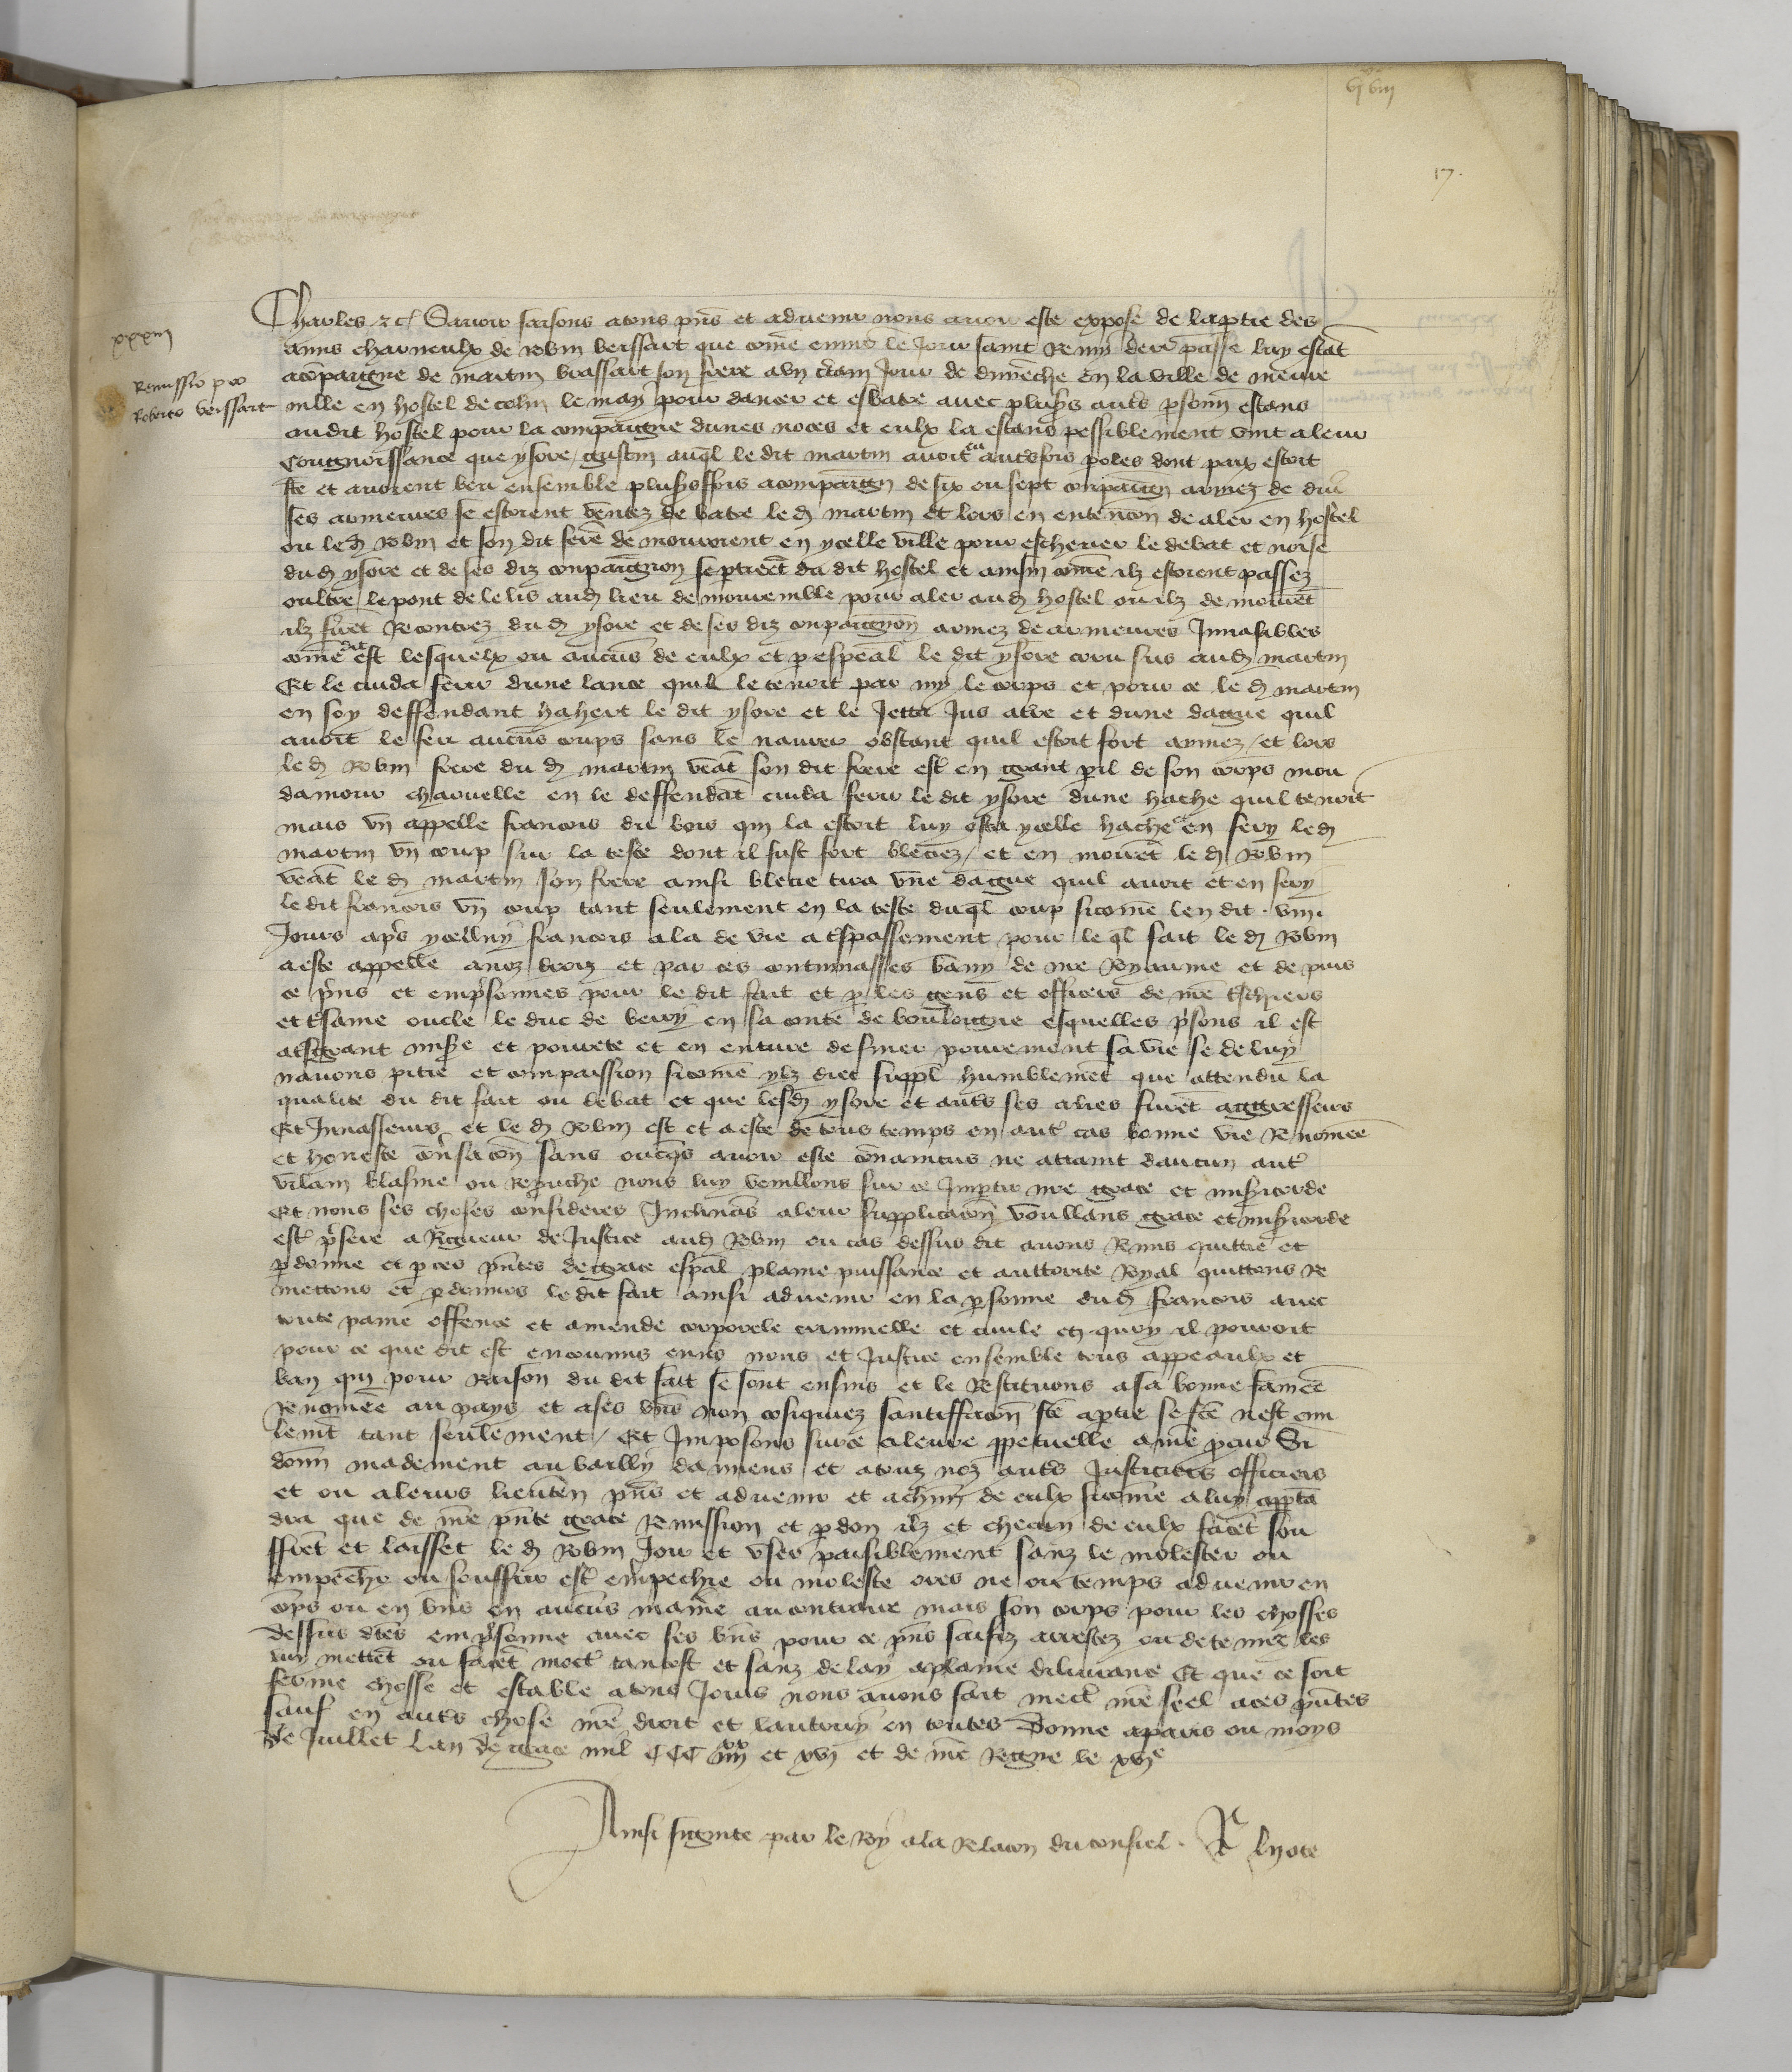 17.
xxxiii
Remissio pro
Roberto Beissart
Charles &c. Savoir faisons a tous pns et advenir nous avoir este expose de la ptie des
amis charneulx de Robin Beissart que come enviro le jour saint Remy derr passe luy estat
acopaigne de Martin Brassart son frere a un ctain jour de dimeche en la ville de
ville en hostel de Colin le May pour dancer et esbatre avec pluss autrs psonn estans
audit hostel pour la compaigne dunes noces et eulx la estans pessiblement vint a leur
congnoissance que Ysore auql le dit Martin avoit eu autrsfois poles dont paix estoit
fte et avoient beu ensemble plussffois acompaign de six ou sept conpaign armez de div
ses armeures se estoient ventez de batre led Martin et lors en entencon de aler en hostel
ou led Robin et son dit frere demouroient en ycelle ville pour eschever le debat et noise
dud Ysore et de ses diz conpaignon se ptiret du dit hostel et ainsin come ilz estoient passez
oultre le pont de le lis aud lieu de pour aler aud hostel ou ilz demouret
ilz furet Recontrez dud Ysore et de ses diz conpaignon armez de armeures Invasibles
come dit est lesquelx ou aucuns de eulx et p espeal le dit Ysore coru sus aud Martin
Et le cuida ferir dune lance quil le tenoit par my le corps et pour ce led Martin
en soy deffendant hahert le dit Ysore et le Jetta Jus a tre et dune dague quil
avoit le feri aucuns coups sans le navrer obstant quil estoit fort armez / et lors
led Robin frere du d Martin veat son dit frere est en grant pil de son corps meu
damour charnelle en le deffendat cuida ferir le dit Ysore dune hache quil tenoit
mais un appelle Francois du Bois qui la estoit luy osta ycelle hache en fery led
Martin un coup sur la teste dont il fust fort bleciez / et en mouret led Robin
veat led Martin son frere ainsi blecie tira une dague quil avoit et en fery
ledit Francois un coup tant seulement en la teste duql coup sicome len dit . viii
Jours aprs ycelluy Francois ala de vie a trspassement pour leql fait led Robin
a este appelle a noz droiz et par ces contumasses bany de nre Royaume et depuis
ce pns et empsonnes pour le dit fait et p les gens et officiers de nre trschiers
et trsame oncle le duc de Berry en sa conte de Bouloigne esquelles psons il est
a trsgrant mise et povrete et en enture de finer povrement sa vie se de luy
navons pitie et compaission sicome ylz diet suppl humblemet que attendu la
qualite du dit fait ou debat et que lesd Ysore et autrs ses alies furet aggresseurs
Et Invasseurs et led Robin est et a este de tous temps en autr cas bonne vie Renomee
et honeste convsacon sans oncqs avoir este convaincus ne attaint daucun autr
vilain blasme ou Reprouche nous luy veuillons sur ce Impartir nre grace et misicorde
Et nous ses choses consideres Inclinas a leur supplicacon voullans grace et misicorde
estr pferee a Rigueur de Justice aud Robin ou cas dessus dit avons Remis quittie et
pdonne et p ces pntes de grace espal plaine puissance et auttorite Royal quittons Re
mettons et pdonnos ledit fait ainsi advenir en la psonne dud Francois avec
toute paine offence et amende corporele criminelle et civile en quoy il pouroit
pour ce que dit est encourus envs nous et Justice ensemble tous appeaulx et
ban qui pour Raison du dit fait se sont ensuis et le Restituons a sa bonne famee
Renomee au pays et a ses bns non cosiquiez santiffacon fte a ptie se fte nest civi
lemet tant seulement / Et Imposons surce silence ppetuelle a nre pcur Si
donn madement au bailly damiens et a touz noz autrs Justiciers officiers
et ou a leurs lieuten pns et advenir et a chun de eulx sicome a luy apptie
dra que de nre pnte grace Remission et pdon ilz et chacun de eulx facet sou
ffret et laisset led Robin Jour et user paisiblement sanz le molester ou
empechr ou souffrir estr empechie ou moleste ores ne ou temps advenir en
corps ou en bns en aucuns manie au contraire mais son corps pour les chosses
dessus dtes empsonne avec ses bns pour ce pns saisiz arrestez ou detenuz les
luy mettet ou facet mectr tantost et sanz delay a plaine delivrance Et que ce soit
ferme chosse et estable a tous Jours nous avons fait mectr nre seel a ces pntes
sauf en autrs chose nre droit et lautruy en toutes Donne a Paris ou moys
de Juillet Lan de grace mil CCC iiiixx et xvi et de nre Regne le xvie
Ainsi signee par le Roy a la Relacon du conseil .